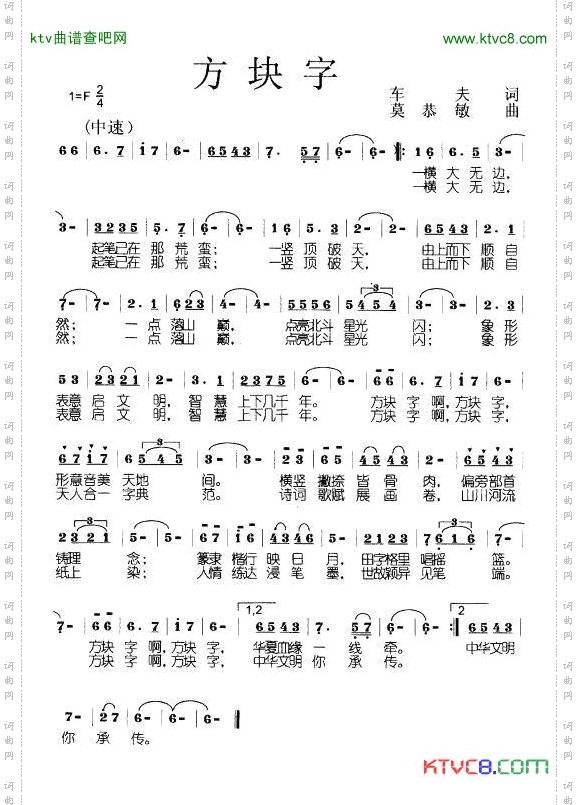 ktv曲谱查吧网
www.ktvc8.com
方块字
1=F 2/4
车夫 词
莫恭敏 曲
(中速)
66 | 6. 7 | i7 6 | 6- | 6543 | 7. 57 | 6- | 6- |: i6 | 6. 5 | 3- |
一横大无边,
一横大无边,
3- | 3235 | 5. 7 | 6- | 6- | i6 | 5. 3 | 2- | 2- | 6543 | 2. 1 |
起笔已在那荒蛮; 一竖顶破天, 由上而下顺自
起笔已在那荒蛮; 一竖顶破天, 由上而下顺自
7- | 7- | 2. 1 | 623 | 4- | 4- | 5556 | 5454 | 3- | 3- | 2. 1 |
然; 一点落山巅, 点亮北斗星光闪; 象形
然; 一点落山巅, 点亮北斗星光闪; 象形
53 | 2321 | 2- | 3. 1 | 2375 | 6- | 6- | 66 | 6. 7 | i7 | 6- |
表意启文明,智慧上下几千年。 方块字啊,方块字,
表意启文明,智慧上下几千年。 方块字啊,方块字,
67i7 | 6545 | 3- | 3- | 23 | 65 | 43 | 2- | 6543 |
形意音美天地间。 横竖撇捺皆骨肉,偏旁部首
天人合一字典范。 诗词歌赋展画卷,山川河流
2321 | 2- | 2- | 23 | 53 | 21 | 6- | 7567 | 616 | 7- |
铸理念; 篆隶楷行映日月,田字格里唱摇篮。
纸上染; 人情练达浸笔墨,世故颖异见笔端。
1,2
2
7- | 66 | 6. 7 | i7 | 6- | 6543 | 7. 57 | 6- | 6- :| 6543 |
方块字啊,方块字, 华夏血缘一线牵。 中华文明
方块字啊,方块字, 中华文明你承传。
7- | 27 | 6- | 6- | 6- ||
你承传。
KTVC8.com
词曲网